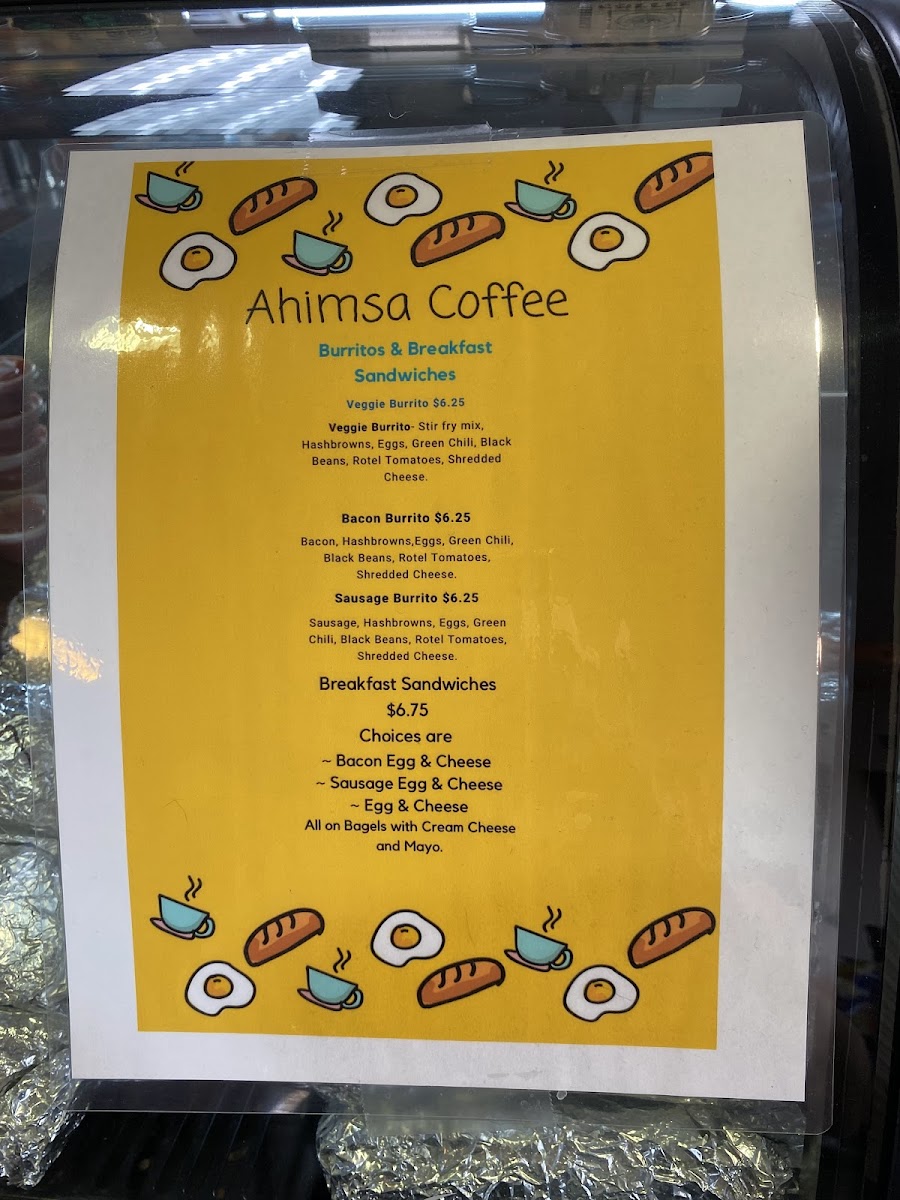 Ahimsa Coffee
Burritos & Breakfast
Sandwiches
Veggie Burrito $6.25
Veggie Burrito- Stir fry mix,
Hashbrowns, Eggs, Green Chili, Black
Beans, Rotel Tomatoes, Shredded
Cheese.
Bacon Burrito $6.25
Bacon, Hashbrowns,Eggs, Green Chili,
Black Beans, Rotel Tomatoes,
Shredded Cheese.
Sausage Burrito $6.25
Sausage, Hashbrowns, Eggs, Green
Chili, Black Beans, Rotel Tomatoes,
Shredded Cheese.
Breakfast Sandwiches
$6.75
Choices are
~ Bacon Egg & Cheese
~ Sausage Egg & Cheese
~ Egg & Cheese
All on Bagels with Cream Cheese
and Mayo.